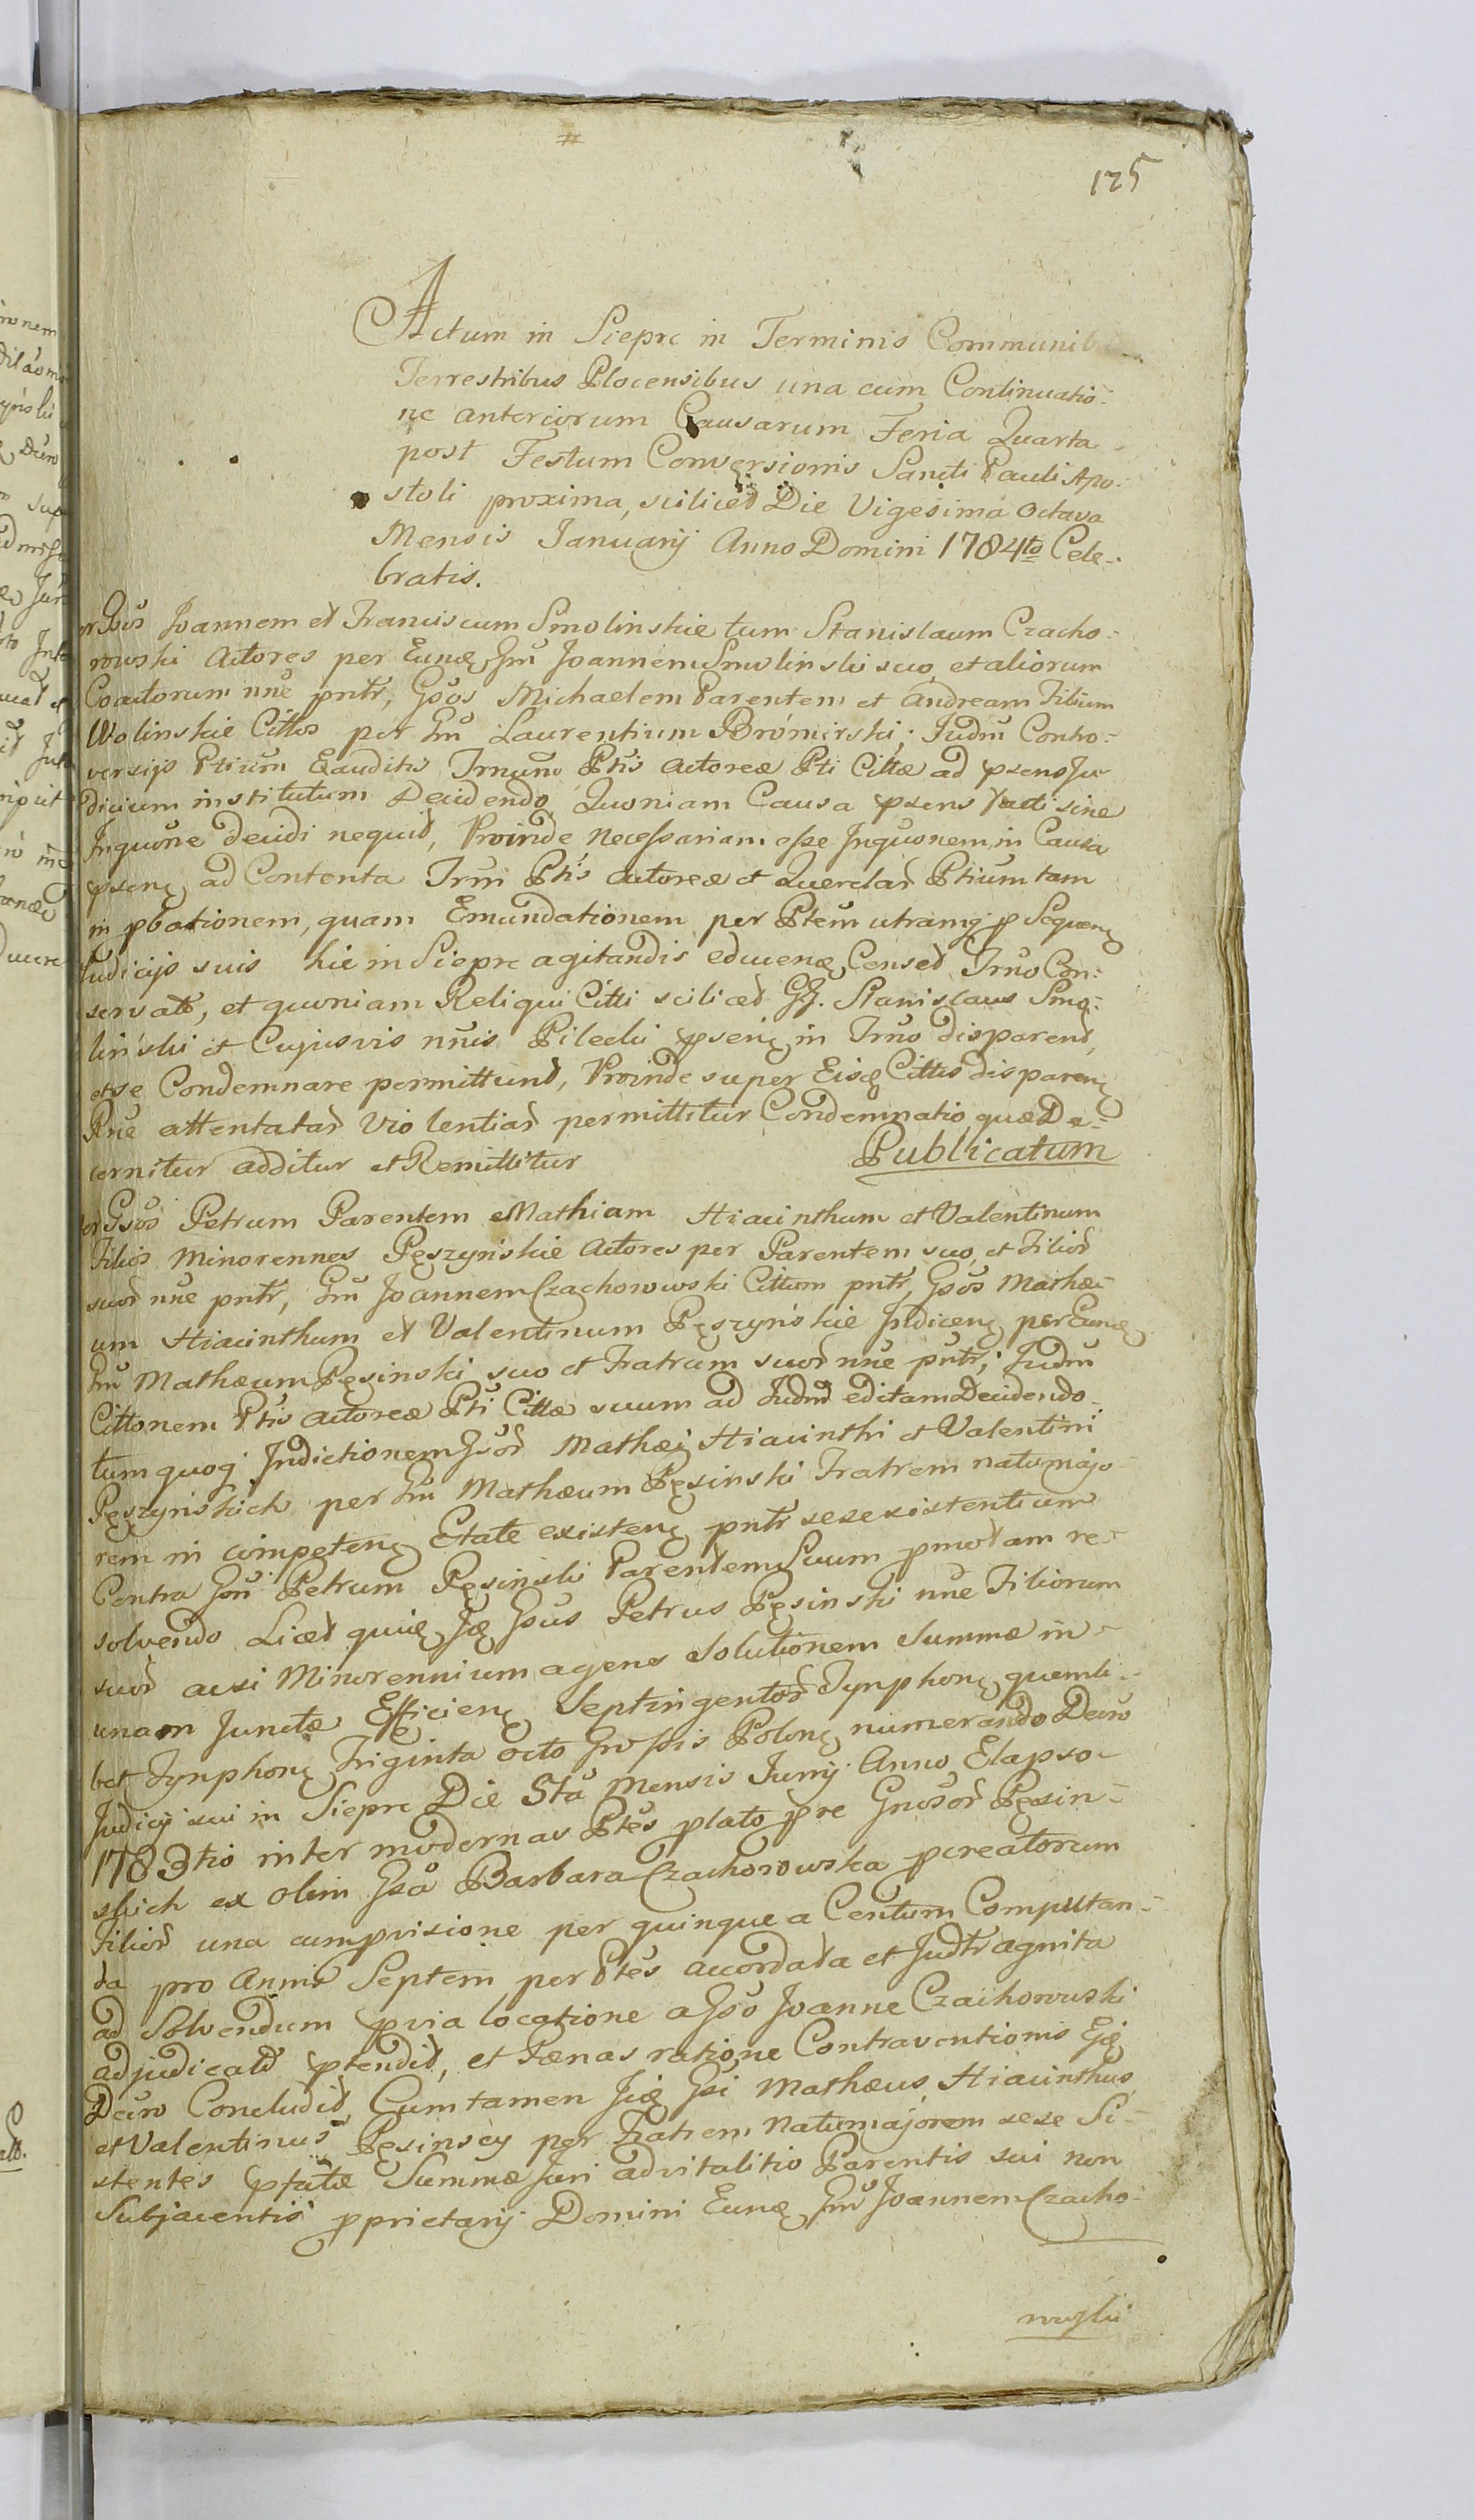 #
125
Actum in Siepre in Terminis Communib
Terrestribus Plocensibus una cum Continuatio-
ne anteriorum Causarum Feria Quarta
post Festum Conversionis Sancti Pauli Apo-
stoli proxima, scilicet Die Vigesima Octava
Mensis Januarij Anno Domini 1784to Cele-
bratis.
Gsos Joannem et Franciscum Smolinskie tum Stanislaum Czacho-
rowski Actores per Eunq Gm Joannem Smolinski suo et aliorum
Coactorum nne pntr, Gsos Michaelem Parentem et Andream Filium
Wolinskie Cittos per Gm Laurentium Bromirski; Judm Contro-
versijs Ptium Exauditis Trnum Ptis Actoreæ Pti Cittæ ad psens Ju-
dicium institutum Decidendo Quoniam Causa psens Facti sine
Inquone decidi nequit, Proinde necessariam esse Inquonem in Causa
psenq ad Contenta Trni Ptis Actoreæ et Querelar Ptium tam
in pbationem, quam Emundationem per Ptem utramq p Sequenq
Judicijs suis hic in Siepre agitandis educenq Censet Trno Con-
servato, et quoniam Reliqui Citti scilicet GG. Stanislaus Smo-
linski et Cujusvis nnis Pilecki psenq in Trno disparent,
et se Condemnare permittunt, Proinde super Eisq Cittis disparenq
Rne attentatar Violentiar permittitur Condemnatio, quæ De-
cernitur additur et Remittitur
Publicatum
Gsos Petrum Parentem Mathiam Hiacinthum et Valentinum
Filios Minorennes Pęszynskie Actores per Parentem suo et Filior
suor nne pntr, Gm Joannem Czachorowski Cittum pntr, Gsos Mathæ-
um Hiacinthum et Valentinum Pęszynskie Indicenq per Eunq
Gm Mathæum Pęsinski suo et Fratrum suor nne pntr; Judm
Cittonem Ptis Actoreæ Pti Cittæ suum ad Judm editam Decidendo
tum quoq Indictionem Gsor Mathæi Hiacinthi et Valentini
Pęszynskich per Gm Mathæum Pęsinski Fratrem natu majo-
rem in competenq Etate existenq pntr sese existentium
Contra Gsm Petrum Pęsinski Parentem Suum pmotam re-
solvendo Licet quiq Jq Gsus Petrus Pęsinski nne Filiorum
suor acsi Minorennium agens Solutionem Summæ in
unam Junctæ Efficienq Septingentor Tynphonq quemli-
bet Tynphonq Triginta octo Grossis Polonq numerando Decro
Judicij sui in Siepre Die 5ta Mensis Junij Anno Elapso
1783tio inter modernas Ptes plato pre Gnosor Pęsin-
skich ex olim Gsa Barbara Czachorowska pcreatorum
Filior una cum pvisione per quinque a Centum Computan-
da pro Annis Septem per Ptes accordata et Judtr agnita
ad Solvendum pvia locatione a Gso Joanne Czachorowski
adjudicato ptendit, et Pænas ratione Contraventionis Ejq
Decro Concludit, Cum tamen Jiq Gsi Mathæus, Hiacinthus,
et Valentinus Pęsinscy per Fratrem Natu majorem sese Si-
stentes pfatæ Summæ Juri advitalitio Parentis sui non
Subjacentis pprietarij Domini Eunq Gm Joannem Czacho-